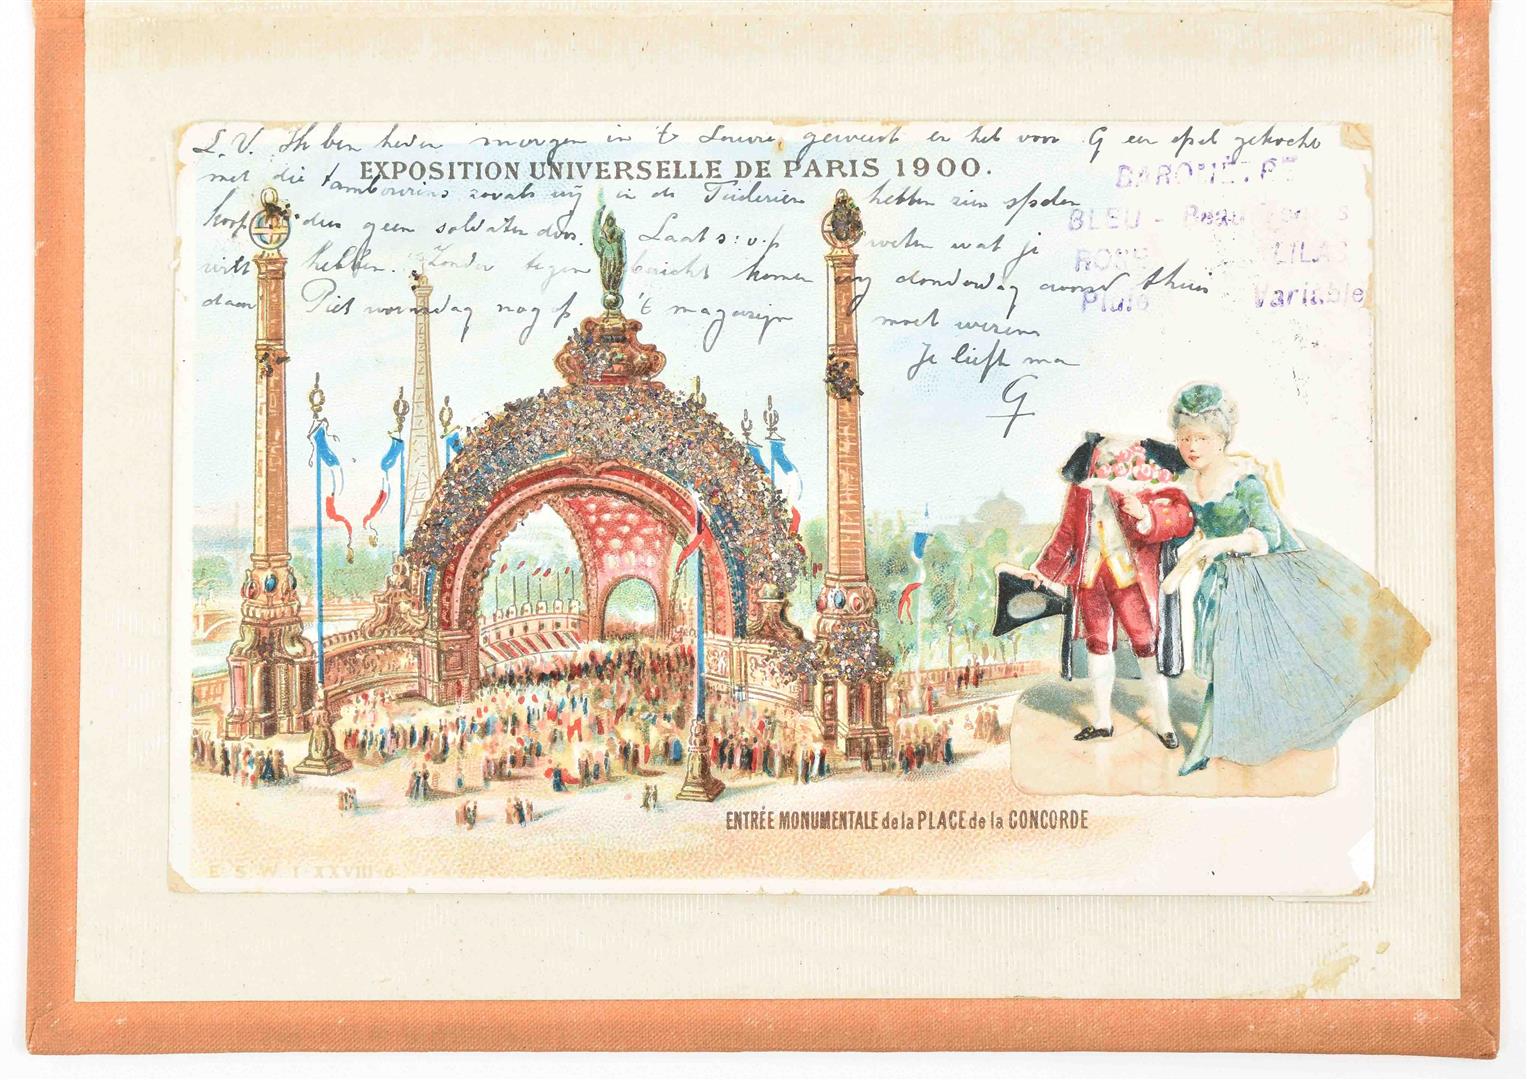 L.V. Ik ben heden morgen in 't Louvre geweest en heb voor G een spel gekocht
EXPOSITION UNIVERSELLE DE PARIS 1900.
met die tambourins zooals wij in de Tuilerien hebben zien spelen
koop dus geen soldaten doos. Laat s.v.p weten wat je
wilt hebben. Zonder tegen bericht komen wij donderdag avond thuis
daar Piet woensdag nog op 't magazijn moet wezen
Je liefh ma
G
BAROMÈTRE
BLEU - Beau Temps
ROSE LILAS
Pluie Variable
ENTRÉE MONUMENTALE de la PLACE de la CONCORDE
E. S. W. I XXVIII 6